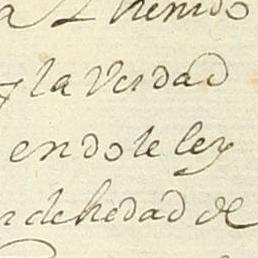 a L henido
y la Verdad
endole ley
r dehedad de